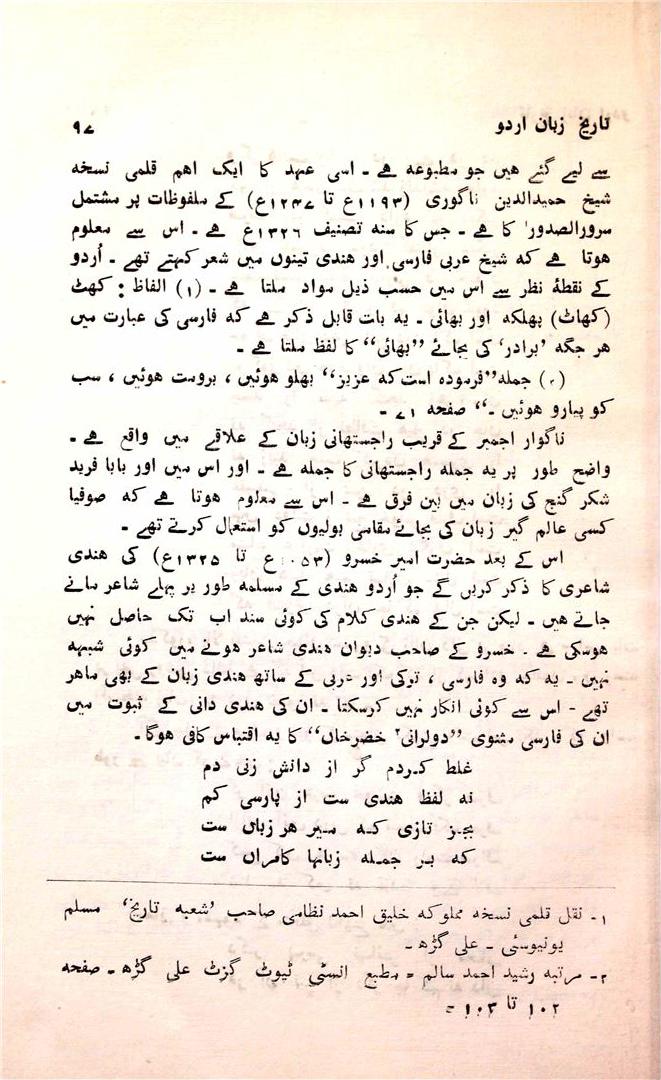 تاریخ زبان اردو ۹۷
سے لیے گئے ہیں جو مطبوعہ ہے ۔ اسی عہد کا ایک اہم قلمی نسخہ
شیخ حمیدالدین ناگوری (۱۱۹۳ع تا ۱۲۴۷ع) کے ملفوظات پر مشتمل
سرورالصدور۱ کا ہے ۔ جس کا سنہ تصنیف ۱۳۲۶ع ہے ۔ اس سے معلوم
ہوتا ہے کہ شیخ عربی فارسی اور ہندی تینوں میں شعر کہتے تھے ۔ اُردو
کے نقطۂ نظر سے اس میں حسب ذیل مواد ملتا ہے ۔ (۱) الفاظ : کھٹ
(کھاٹ) پھلکہ اور بھائی ۔ یہ بات قابل ذکر ہے کہ فارسی کی عبارت میں
ہر جگہ ’برادر‘ کی بجائے ”بھائی“ کا لفظ ملتا ہے ۔
(۲) جملہ ”فرمودہ است کہ عزیز“ بھلو ہوئیں ، بروست ہوئیں ، سب
کو پیارو ہوئیں ۔“ صفحہ ۷۱ ۔
ناگوار اجمیر کے قریب راجستھانی زبان کے علاقے میں واقع ہے ۔
واضح طور پر یہ جملہ راجستھانی کا جملہ ہے ۔ اور اس میں اور بابا فرید
شکر گنج کی زبان میں بین فرق ہے ۔ اس سے معلوم ہوتا ہے کہ صوفیا
کسی عالم گیر زبان کی بجائے مقامی بولیوں کو استعمال کرتے تھے ۔
اس کے بعد حضرت امیر خسرو ( تا ۱۳۲۵ع) کی ہندی
شاعری کا ذکر کریں گے جو اُردو ہندی کے مسلمہ طور پر پہلے شاعر مانے
جاتے ہیں ۔ لیکن جن کے ہندی کلام کی کوئی سند اب تک حاصل نہیں
ہوسکی ہے ۔ خسرو کے صاحب دیوان ہندی شاعر ہونے میں کوئی شبہہ
نہیں ۔ یہ کہ وہ فارسی ، ترکی اور عربی کے ساتھ ہندی زبان کے بھی ماہر
تھے ۔ اس سے کوئی انکار نہیں کرسکتا ۔ ان کی ہندی دانی کے ثبوت میں
ان کی فارسی مثنوی ”دولرانی۲ خضرخاں“ کا یہ اقتباس کافی ہوگا ۔
غلط کردم گر از دانش زنی دم
نہ لفظ ہندی ست از پارسی کم
بجز تازی کہ میر ہر زباں ست
کہ بر جملہ زبانہا کامراں ست
۱- نقل قلمی نسخہ مملوکہ خلیق احمد نظامی صاحب ’شعبہ تاریخ‘ مسلم
یونیوسٹی ۔ علی گڑھ ۔
۲- مرتبہ رشید احمد سالم = مطبع انسٹی ٹیوٹ گزٹ علی گڑھ ۔ صفحہ
۱۰۲ تا ۱۰۳ =